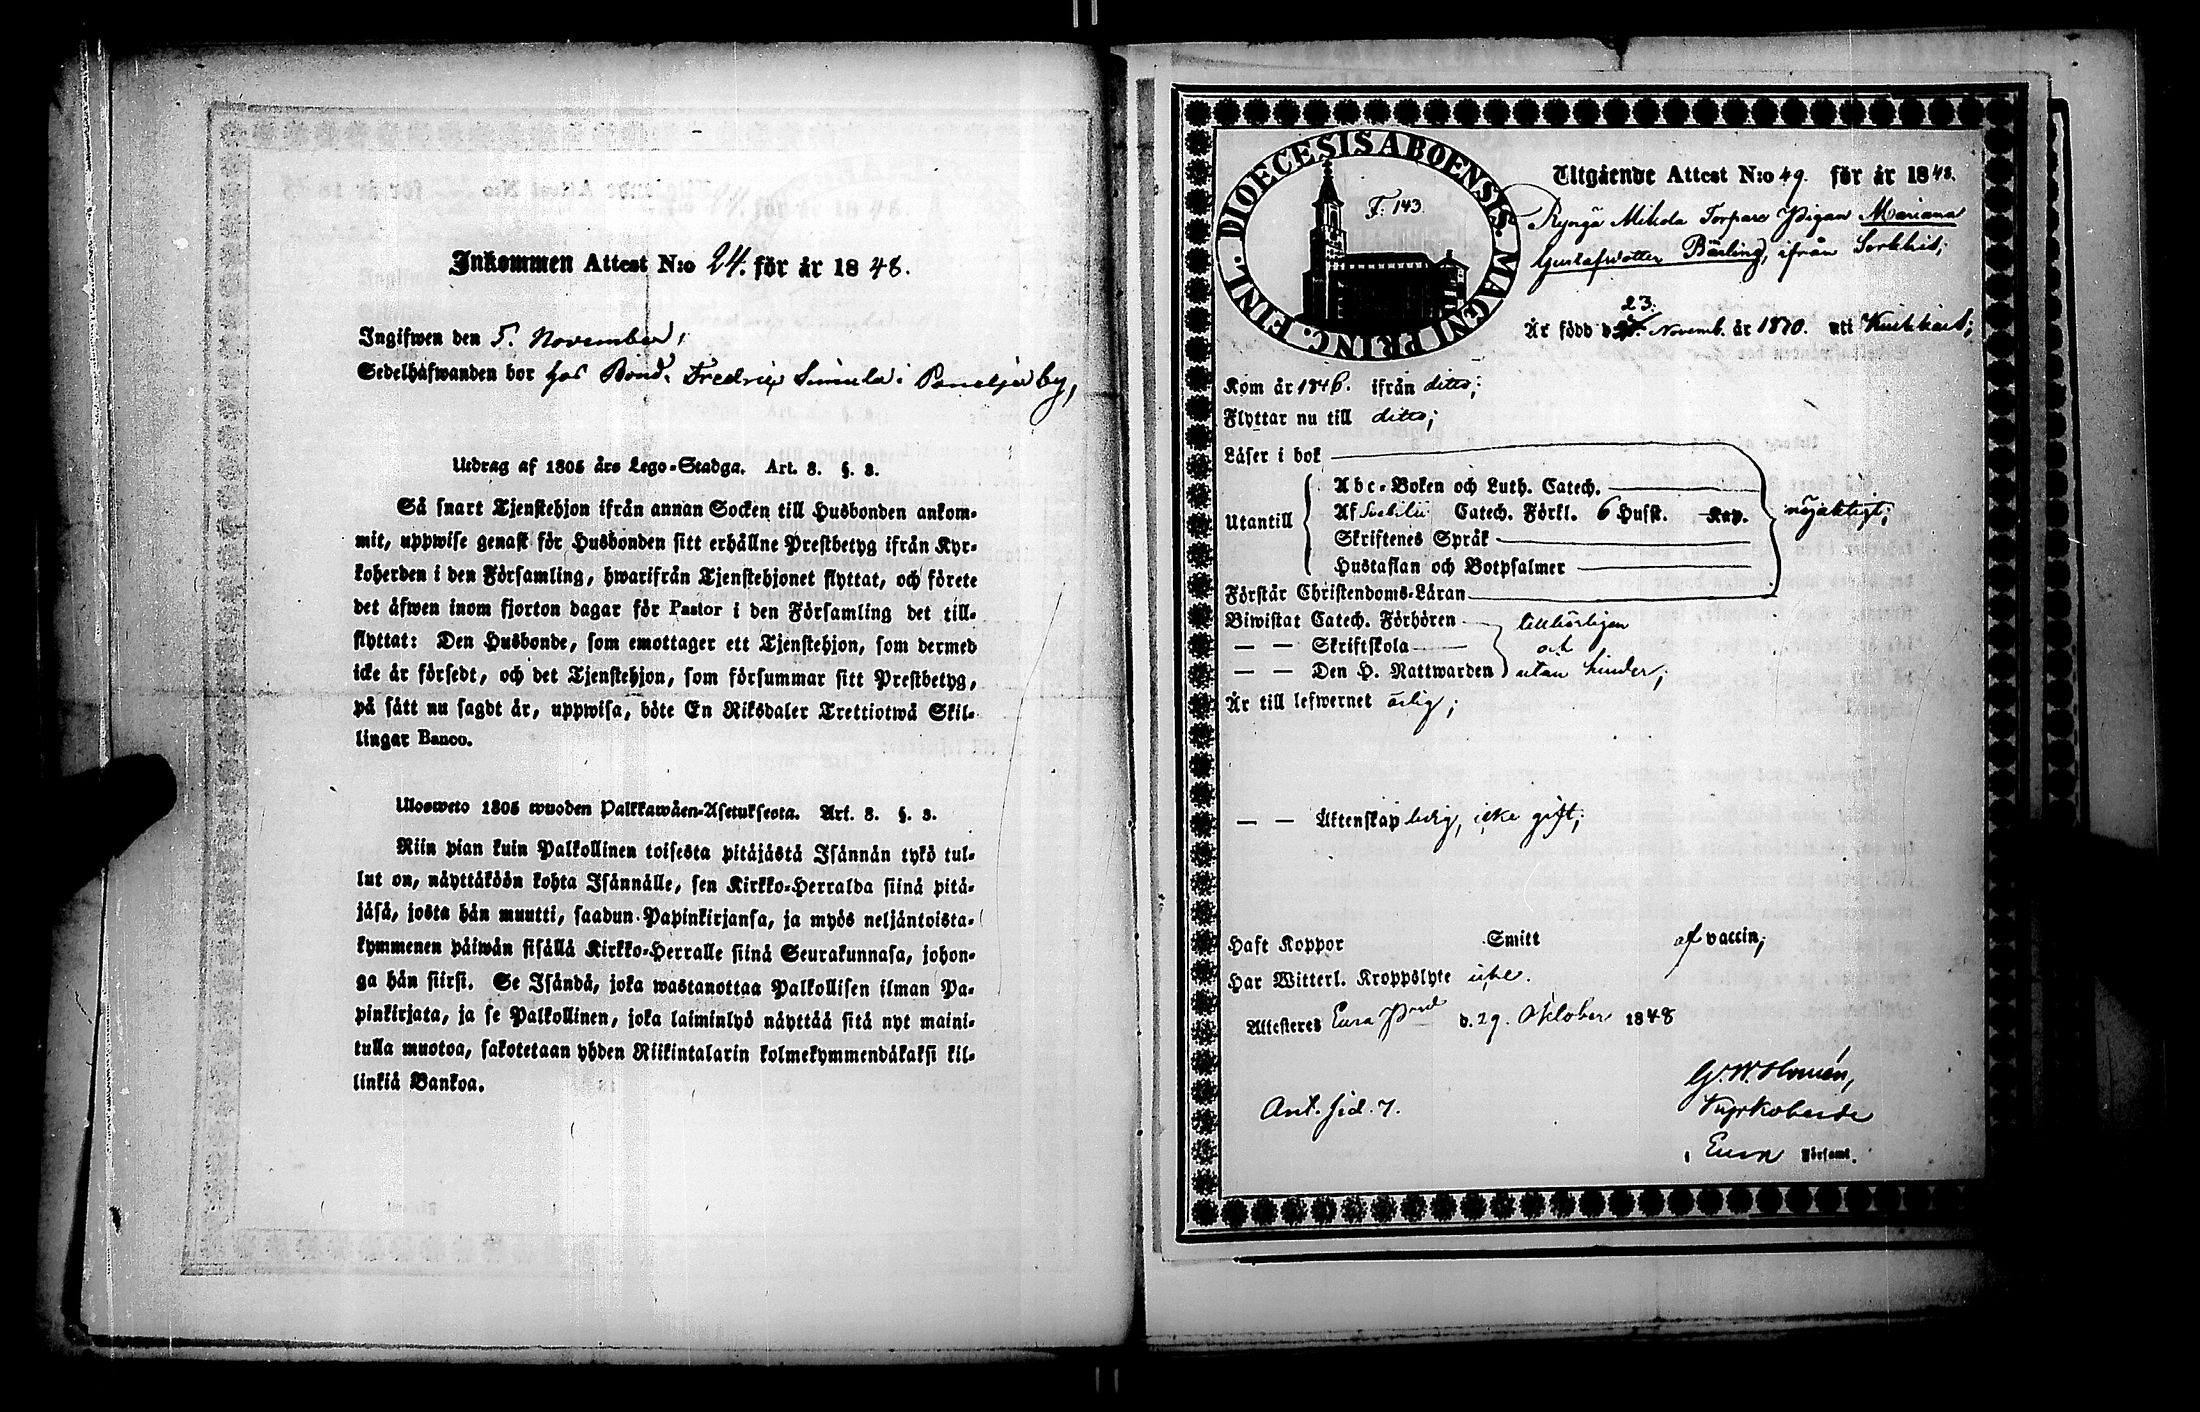 Inkommen Attest N:o 24. för år 1848.
Ingifwen den 5. November,
Sedelhafwanden bor hos Bond. Fredric Simula i Panelja by,
Utdrag af 1805 års Lego-Stadga. Art. 8. §. 3.
Så snart Tjenstehjon ifrån annan Socken till Husbonden ankom-
mit, uppwise genast för Husbonden sitt erhållne Prestbetyg ifrån Kyr-
koherden i den Församling, hwarifrån Tjenstehjonet flyttat, och förete
det äfwen inom fjorton dagar för Pastor i den Församling det till-
flyttat: Den Husbonde, som emottager ett Tjenstehjon, som dermed
icke är försedt, och det Tjenstehjon, som försummar sitt Prestbetyg,
på sätt nu sagdt är, uppwisa, böte En Riksdaler Trettiotwå Skil-
lingar Banco.
Ulosweto 1805 wuoden Palkkawäen-Asetuksesta. Art. 8. §. 3.
Niin pian kuin Palkollinen toisesta pitäjästä Isännän tykö tul-
lut on, näyttäköön kohta Isännälle, sen Kirkko-Herralda siinä pitä-
jäsä, josta hän muutti, saadun Papinkirjansa, ja myös neljäntoista-
kymmenen päiwän sisällä Kirkko-Herralle siinä Seurakunnasa, johon-
ga hän siirsi. Se Isändä, joka wastanottaa Palkollisen ilman Pa-
pinkirjata, ja se Palkollinen, joka laiminlyö näyttää sitä nyt maini-
tulla muotoa, sakotetaan yhden Riikintalarin kolmekymmendäkaksi kil-
linkiä Bankoa.
FINL. DIOECESIS ABOENSIS. MAGNI PRINC.
F. 143.
Utgående Attest N:o 49. för år 1848.
Torpare Pigan Mariana
Gustafsdotter Bärling, ifrån Sorkkis;
23.
Är född d. Novemb. år 1810. uti
Kom år 1846. ifrån ditto;
Flyttar nu till ditto;
Läser i bok
Utantill
Abc-Boken och Luth. Catech.
Af Catech. Förkl. 6 Hufst. Kap. nöjaktigt;
Skriftenes Språk
Hustaflan och Botpsalmer
Förstår Christendoms-Läran
Biwistat Catech. Förhören tillbörligen
— — Skriftskola och
— — Den H. Nattwarden utan hinder;
Är till lefwernet ärlig;
— — Äktenskap ledig, icke gift;
Haft Koppor Smitt af vaccin;
Har Witterl. Kroppslyte icke.
Attesteres Eura Prgd d. 29. Oktober 1848
G. W. Homén,
Ant. sid. 7. Kyrkoherde
i Eura Församl.